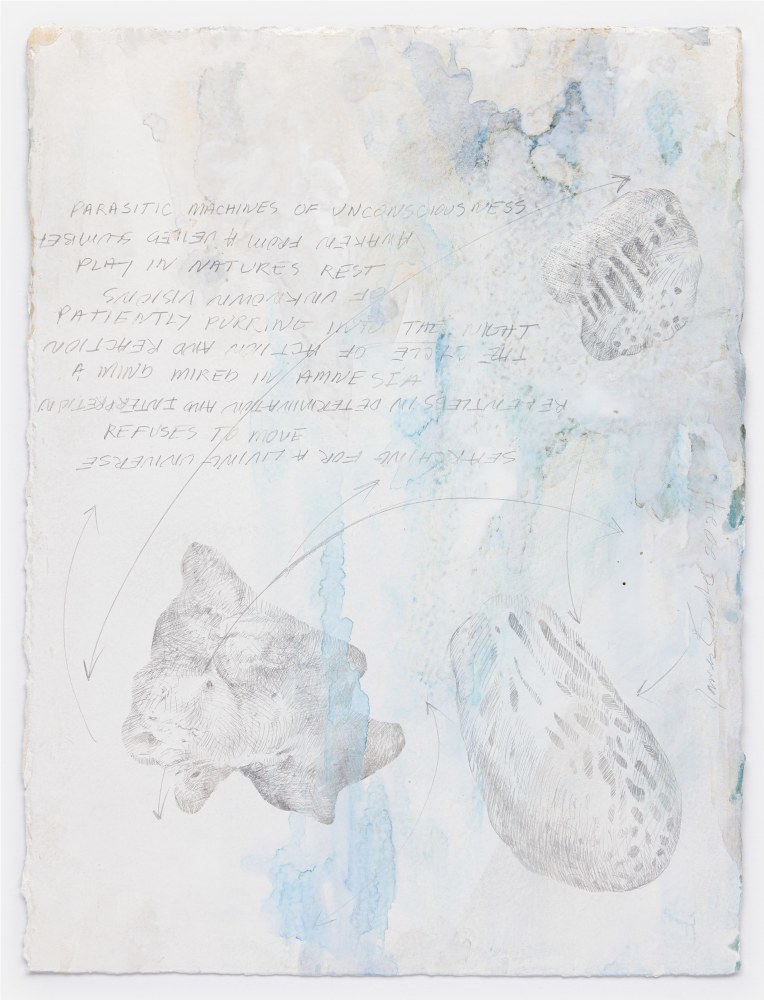 PARASITIC MACHINES OF UNCONSCIOUSNESS
AWAKEN FROM A VEILED SLUMBER
PLAY IN NATURES REST
OF UNKNOWN VISIONS
PATIENTLY PURRING INTO THE NIGHT
THE OF ACTION AND REACTION
A MIND MIRED IN AMNESIA
RELENTLESS IN DETERMINATION AND INTERPRETION
REFUSES TO MOVE
SEARCHING FOR A LIVING UNIVERSE